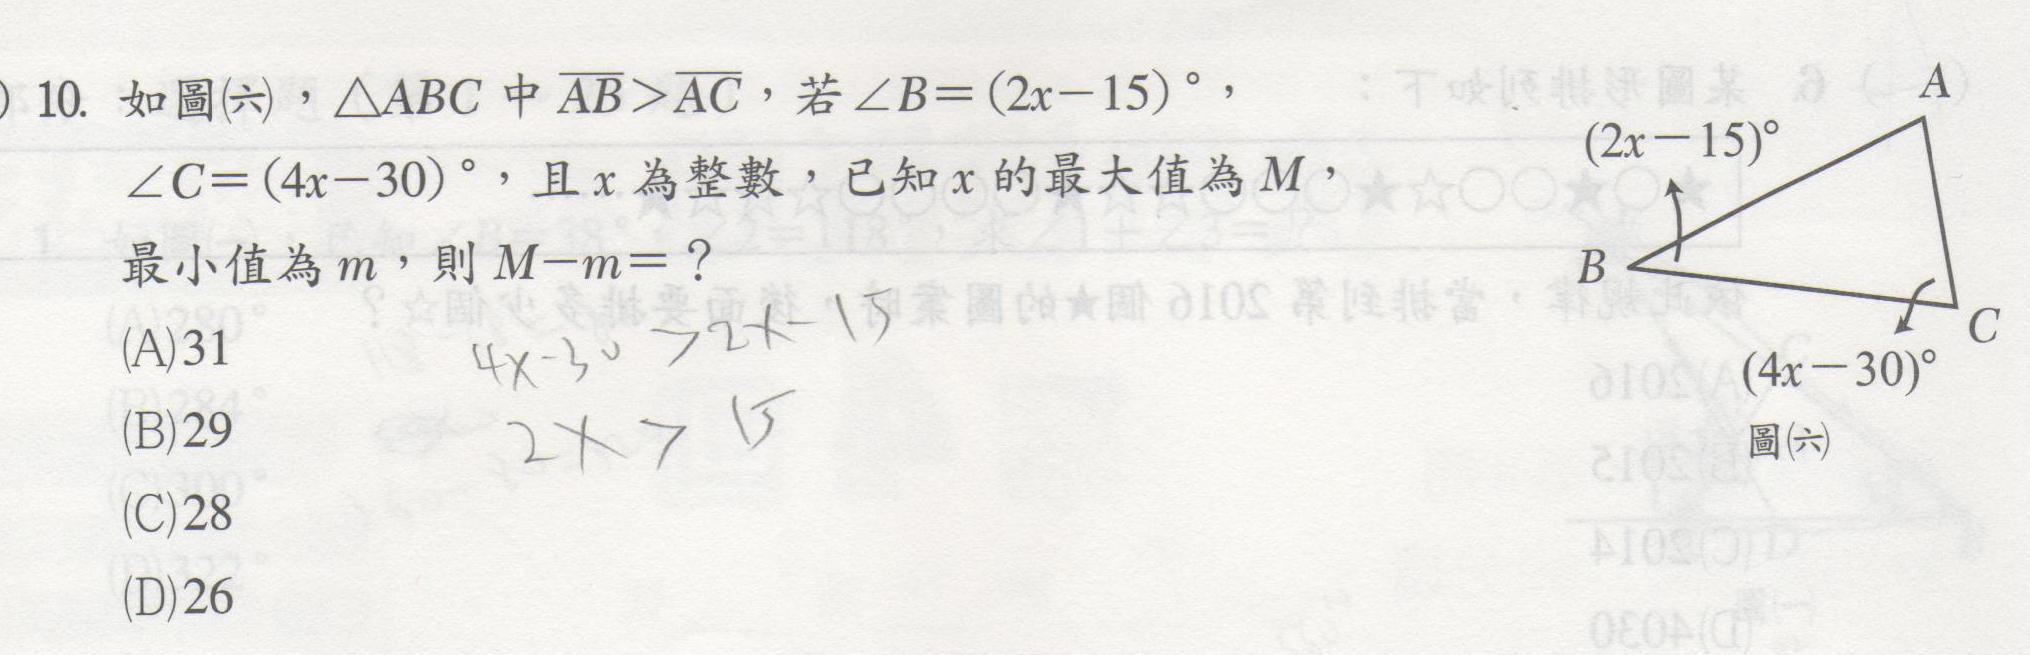 ) 10. 如圖㈥，△ABC 中 AB>AC，若∠B=(2x-15)°，
∠C=(4x-30)°，且 x 為整數，已知 x 的最大值為 M，
最小值為 m，則 M-m=？
(A)31
(B)29
(C)28
(D)26
4x-30 >2x-15
2x > 15
A
(2x-15)°
B
C
(4x-30)°
圖㈥